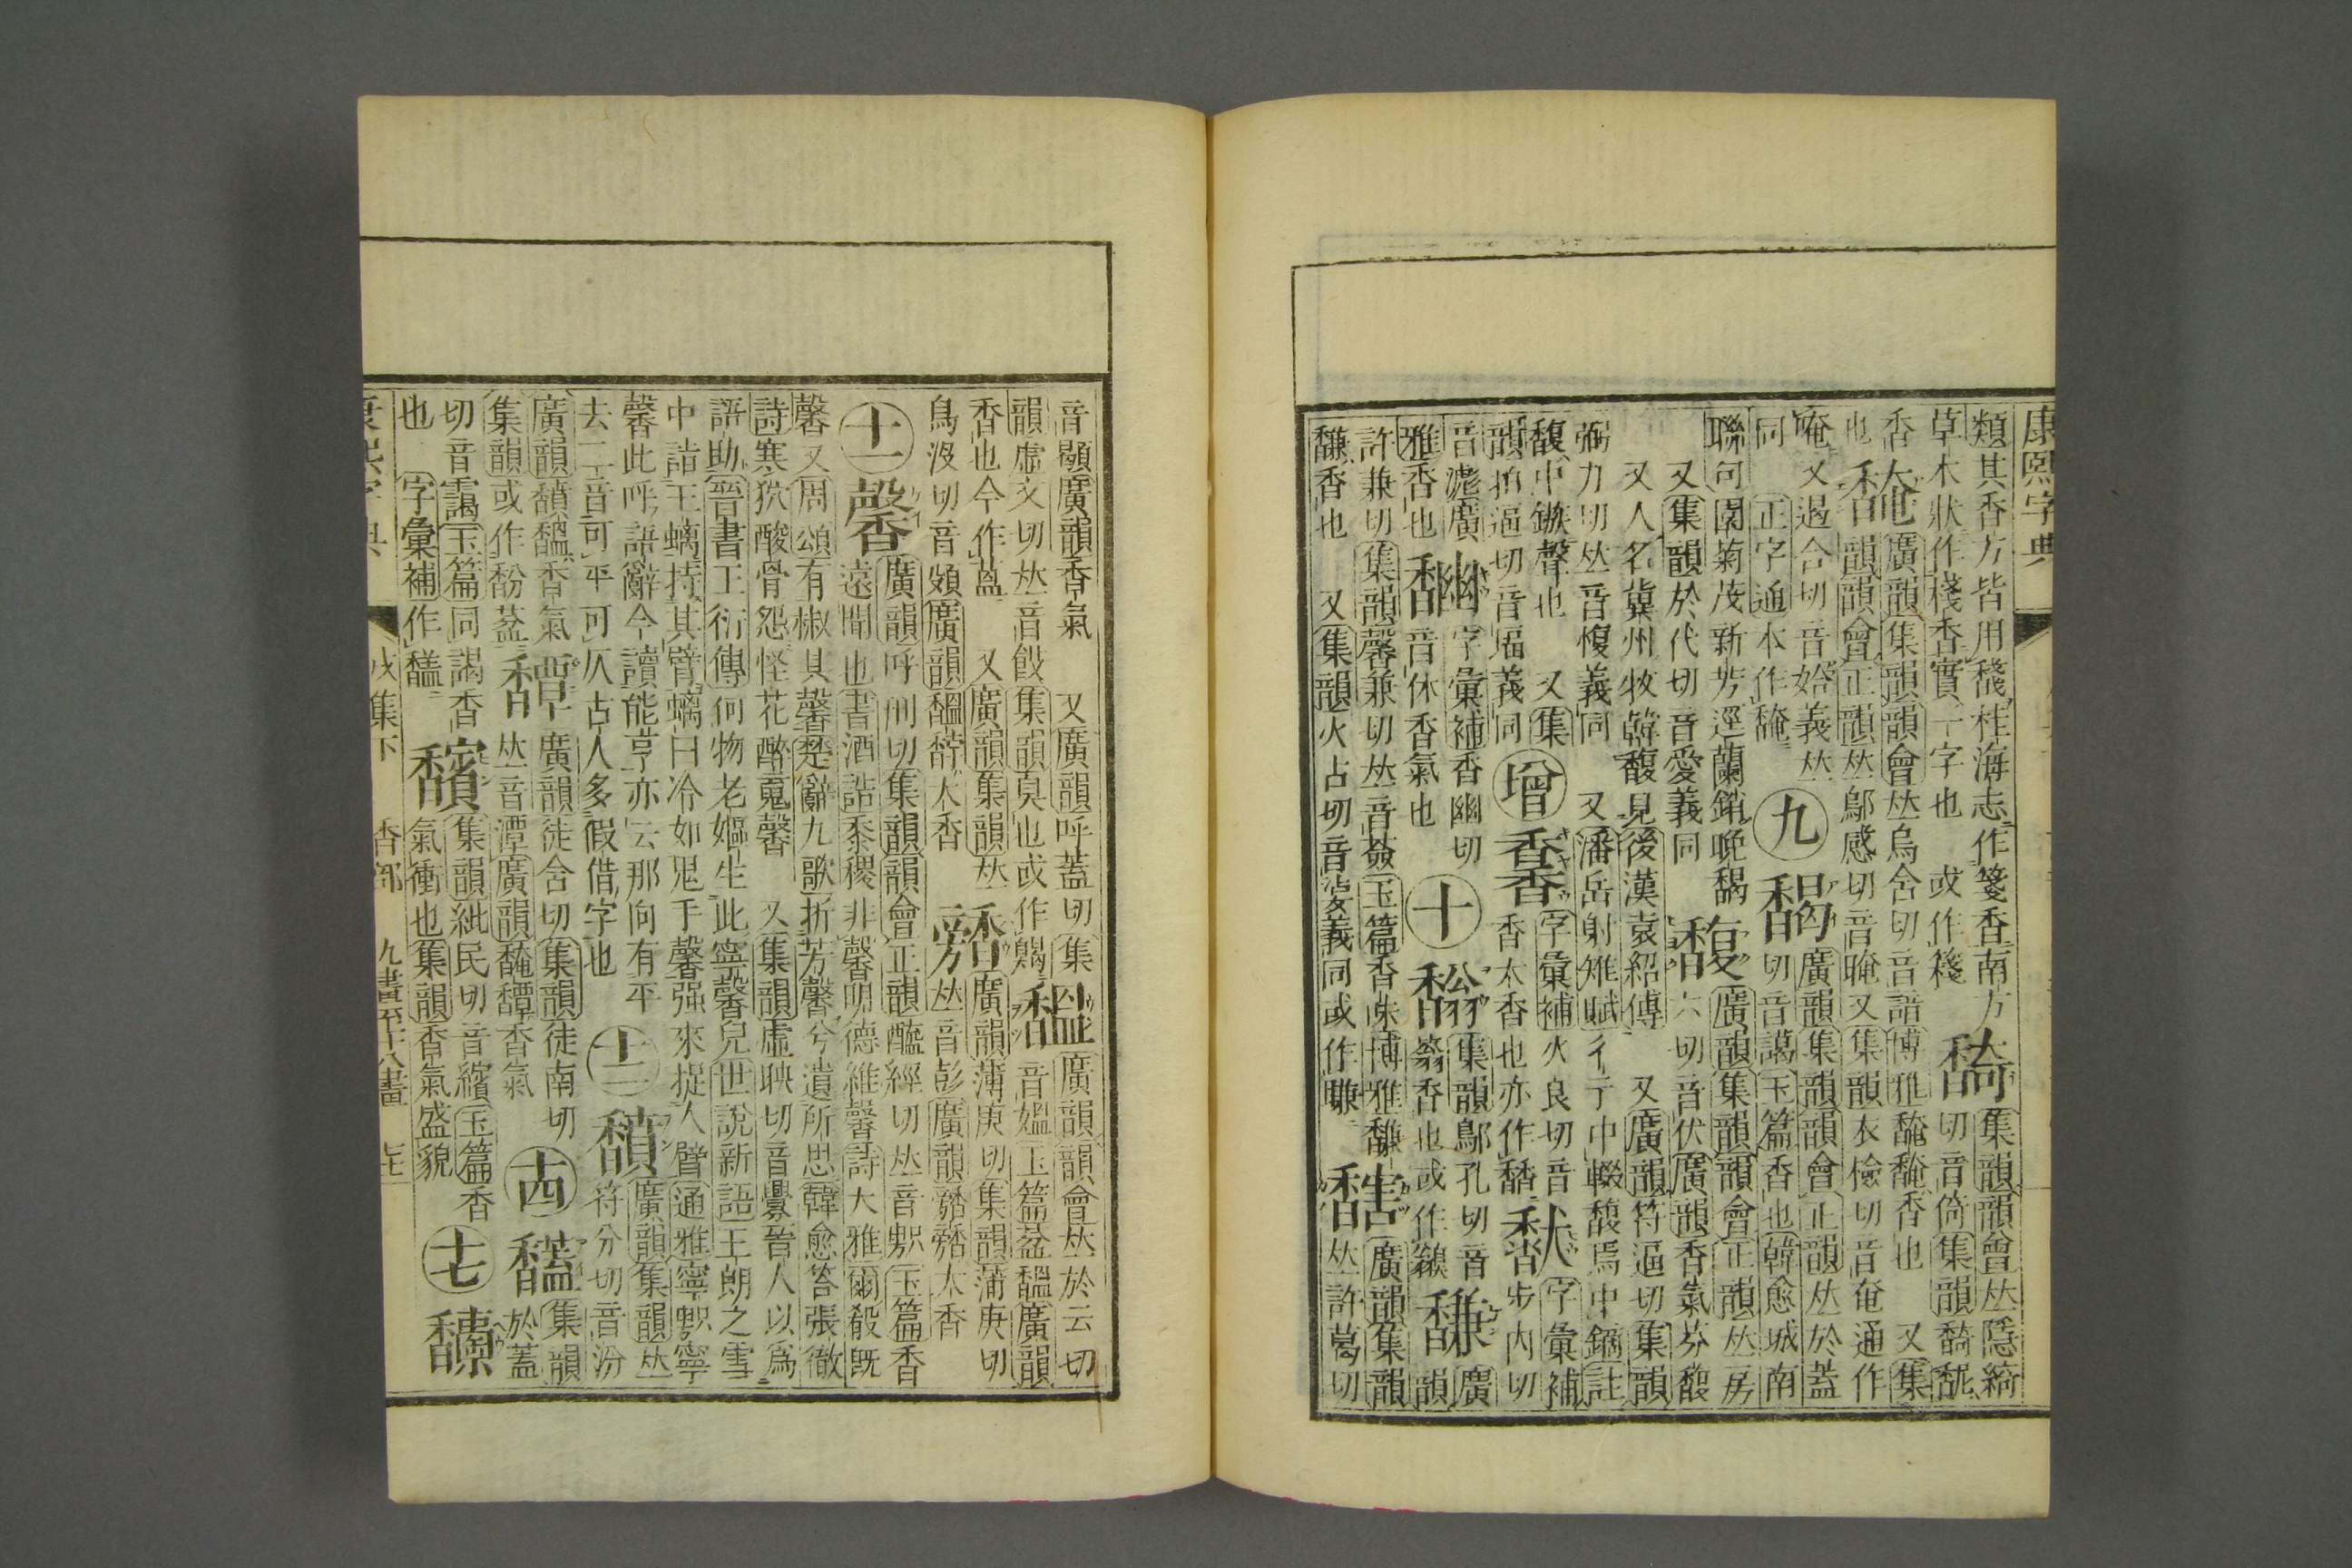 康熙字典
類其香方皆用䅼桂海志作箋香南方
草木狀作棧香實一字也 或作䉔
䭲集韻韻會𠀤隱綺
切音倚集韻䭲馜
香 䤶廣韻集韻韻會𠀤烏含切音諳博雅馣馣香也 又集
也 韻韻會正韻𠀤鄔感切音晻又集韻衣檢切音奄通作
唵 又遏合切音姶義𠀤
同 正字通本作䅖
九 馤廣韻集韻韻會正韻𠀤於蓋
切音藹玉篇香也韓愈城南
聯句園菊茂新芳逕蘭銷晚馤
又集韻於代切音愛義同
馥廣韻集韻韻會正韻𠀤房
六切音伏廣韻香氣芬馥
又人名冀州牧韓馥見後漢袁紹傳 又廣韻符逼切集韻
弼力切𠀤音愎義同 又潘岳射雉賦彳亍中輟馥焉中鏑註
馥中鏃聲也 又集
韻拍逼切音堛義同
增 字彙補火良切音
香大香也亦作
字彙補
步內切
音滮廣
雅香也
字彙補香幽切
音休香氣也
十 集韻鄔孔切音
蓊香也或作
馦廣
韻
許兼切集韻馨兼切𠀤音薟玉篇香味博雅馦
馦香也 又集韻火占切音㛍義同或作㬱
䭱廣韻集韻
𠀤許葛切
音顯廣韻香氣 又廣韻呼蓋切集
韻虛艾切𠀤音餀集韻臭也或作䬉
馧廣韻韻會𠀤於云切
音熅玉篇馚馧廣韻
香也今作葐 又廣韻集韻𠀤
烏沒切音頞廣韻馧馞大香
䭰廣韻薄庚切集韻蒲庚切
𠀤音彭廣韻䭰䭰大香
十一 馨廣韻呼刑切集韻韻會正韻醯經切𠀤音𧯿玉篇香
遠聞也書酒誥黍稷非馨明德維馨詩大雅爾殽旣
馨又周頌有椒其馨楚辭九歌折芳馨兮遺所思韓愈答張徹
詩寒狖酸骨怨怪花醉䰟馨 又集韻虛映切音㬢晉人以爲
語助晉書王衍傳何物老嫗生此寧馨兒世說新語王朗之雪
中詣王螭持其臂螭曰冷如鬼手馨强來捉人臂通雅寧馨寧
馨此呼語辭今讀能亨亦云那向有平
去二音可平可仄古人多假借字也
十二 馩廣韻集韻𠀤
符分切音汾
廣韻馩馧香氣
集韻或作馚葐
䭳廣韻徒含切集韻徒南切
𠀤音潭廣韻馣䭳香氣
十四 集韻
於蓋
切音靄玉篇同䜡香
也 字彙補作
馪集韻紕民切音繽玉篇香
氣衝也集韻香氣盛貌
十七
康熙字典 戌集下 香部 九畫至十八畫